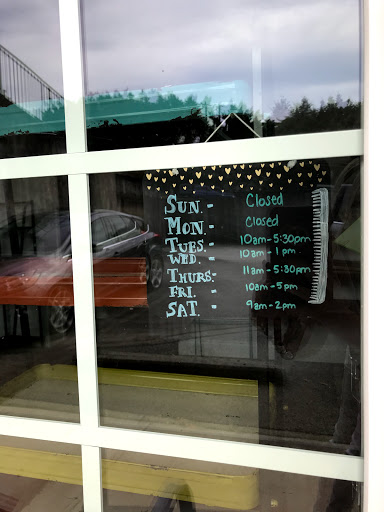 SUN. - Closed
MON. - Closed
TUES. - 10am - 5:30pm
WED. - 10am - 1pm
THURS. - 11am - 5:30pm
FRI. - 10am - 5pm
SAT. - 9am - 2pm